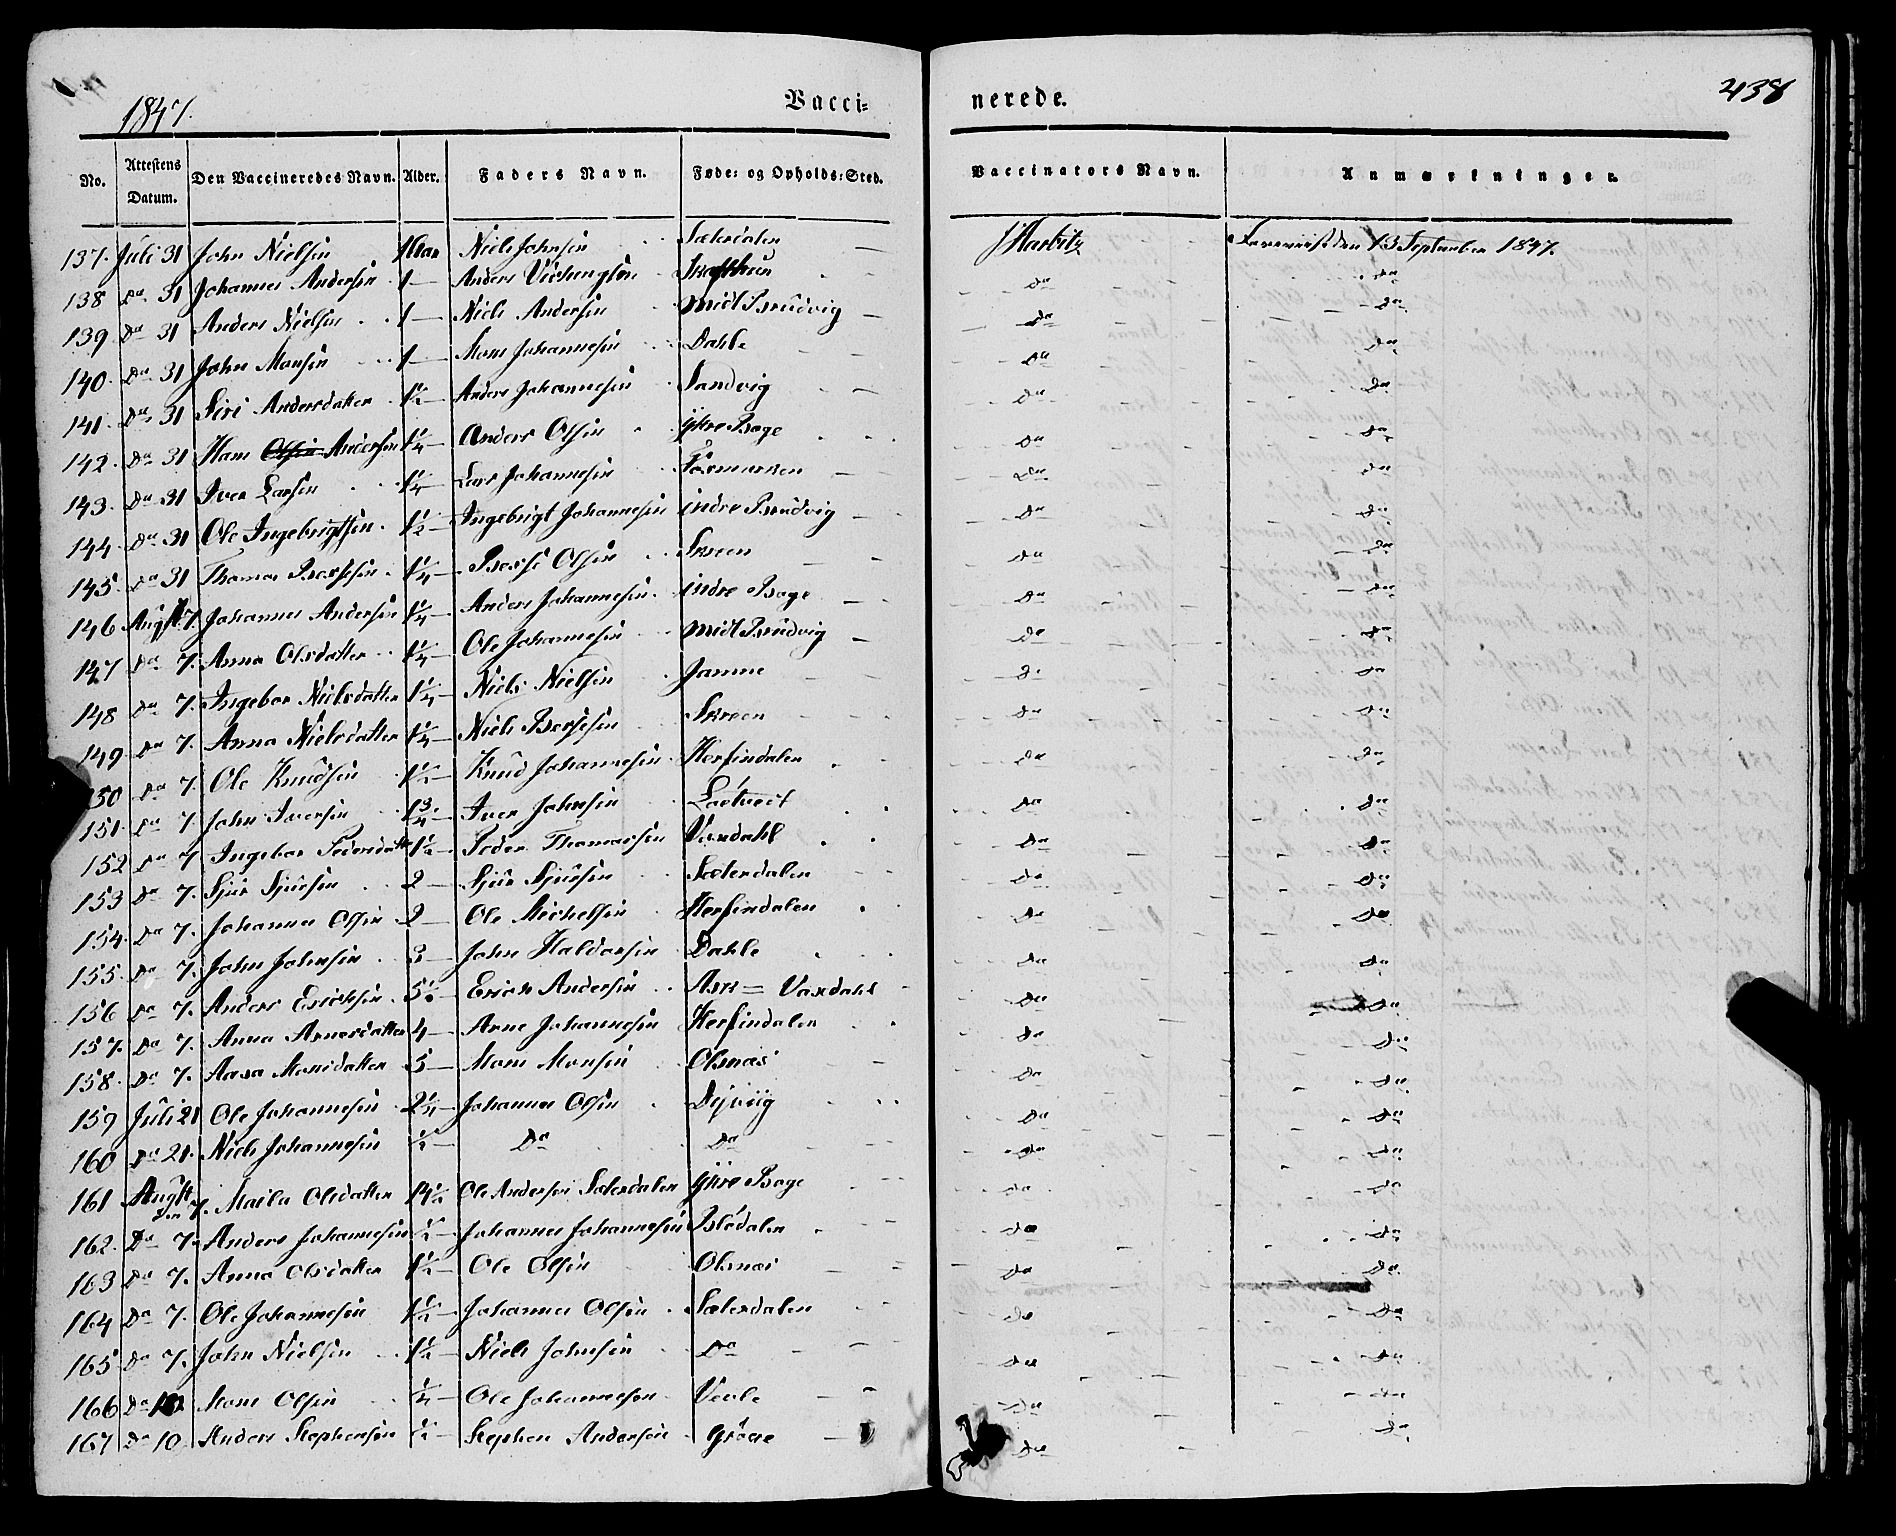 1847.
Vacci=
nerede.
438
No. Attestens Datum. Den Vaccineredes Navn. Alder. Faders Navn. Føde= og Opholds=Sted. Vaccinators Navn. Anmærkninger.
137. Juli 31 John Nielsen 1 Aar Niels Johnsen Sælesdalen Foreviist den 13 September 1847.
138 Do 31 Johannes Andersen 1 — Anders Do Do
139 Do 31 Anders Nielsen 1 — Niels Andersen Midt Bruvig Do Do
140 Do 31 John Monsen 1 — Mons Johannesen Dahle Do Do
141 Do 31 Siri Andersdatter 1½ Anders Johannesen Sandvig Do Do
142 Do 31 Hans Olsen Andersen 1¼ — Anders Olsen Yttre Boge Do Do
143 Do 31 Iver Larsen 1¼ — Lars Johannesen Fosmarken Do Do
144 Do 31 Ole Ingebrigtsen 1½ — Ingebrigt Johannesen indre Bruvig Do Do
145 Do 31 Thomas Børgesen 1¼ — Børge Olsen Skreen Do Do
146 Augst 7 Johannes Andersen 1¼ — Anders Johannesen indre Boge Do Do
147 Do 7. Anna Olsdatter 1¼ — Ole Johannesen Midt Bruvig Do Do
148 Do 7. Ingebor Nielsdatter 1¼ — Niels Nielsen Jamne Do Do
149 Do 7. Anna Nielsdatter 1¼ — Niels Børgesen Skreen Do Do
150 Do 7. Ole Knudsen 1½ — Knud Johannesen Herfindalen Do Do
151 Do 7 John Iversen 1¾ — Iver Johnsen Do Do
152 Do 7 Ingebor Pedersdatter 1½ — Peder Thomassen Vaxdahl Do Do
153 Do 7. Sjur Sjursen 2 — Sjur Sjursen Sælesdalen Do Do
154 Do 7. Johannes Olsen 2 — Ole Michelsen Herfindalen Do Do
155 Do 7. John Johnsen 3 — John Haldorsen Dahle Do Do
156 Do 7. Anders Erichsen 5½ — Erich Andersen Ask = Vaxdahl Do Do
157. Do 7. Anna Arnesdatter 4 — Arne Johannesen Herfindalen Do Do
158. Do 7. Aasa Monsdatter 5 — Mons Monsen Olsnæs Do Do
159 Juli 21 Ole Johannesen 2¼ — Johannes Olsen Do Do
160 Do 21. Niels Johannesen ½ — Do Do Do Do
161 Augst 7. Olsdatter 14½ Ole Andersen Sælesdalen Yttre Boge Do Do
162. Do 7. Anders Johannesen ½ — Johannes Johannesen Blødalen Do Do
163 Do 7. Anna Olsdatter 1½ — Ole Olsen Olsnæs Do Do
164 Do 7. Ole Johannesen 1½ — Johannes Olsen Sælesdalen Do Do
165 Do 7. John Nielsen 1½ — Niels Johnsen Do Do Do
166 Do 10 Mons Olsen ¼ — Ole Johannesen Veole Do Do
167 Do 10. Anders Stephensen ½ — Stephen Andersen Grøve Do Do